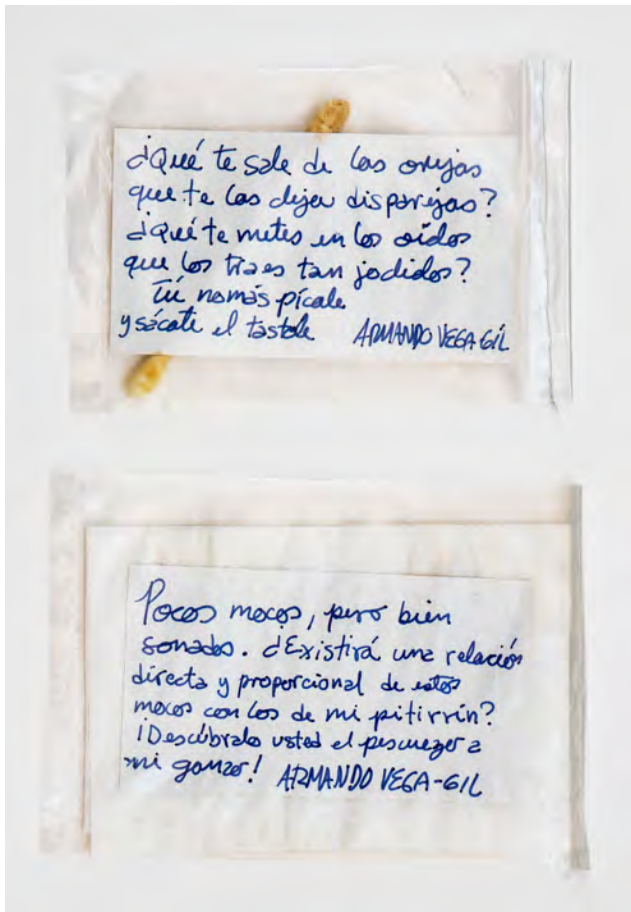 ¿Qué te sale de las orejas
que te las deja disparejas?
¿Qué te metes en los oídos
que los traes tan jodidos?
Tú nomás pícale
y sácate el
ARMANDO VEGA GIL
Pocos mocos, pero bien
sonados. ¿Existirá una relación
directa y proporcional de estos
mocos con los de mi pitirrín?
¡Descúbralo usted el pescuezo a
mi ganzo! ARMANDO VEGA-GIL